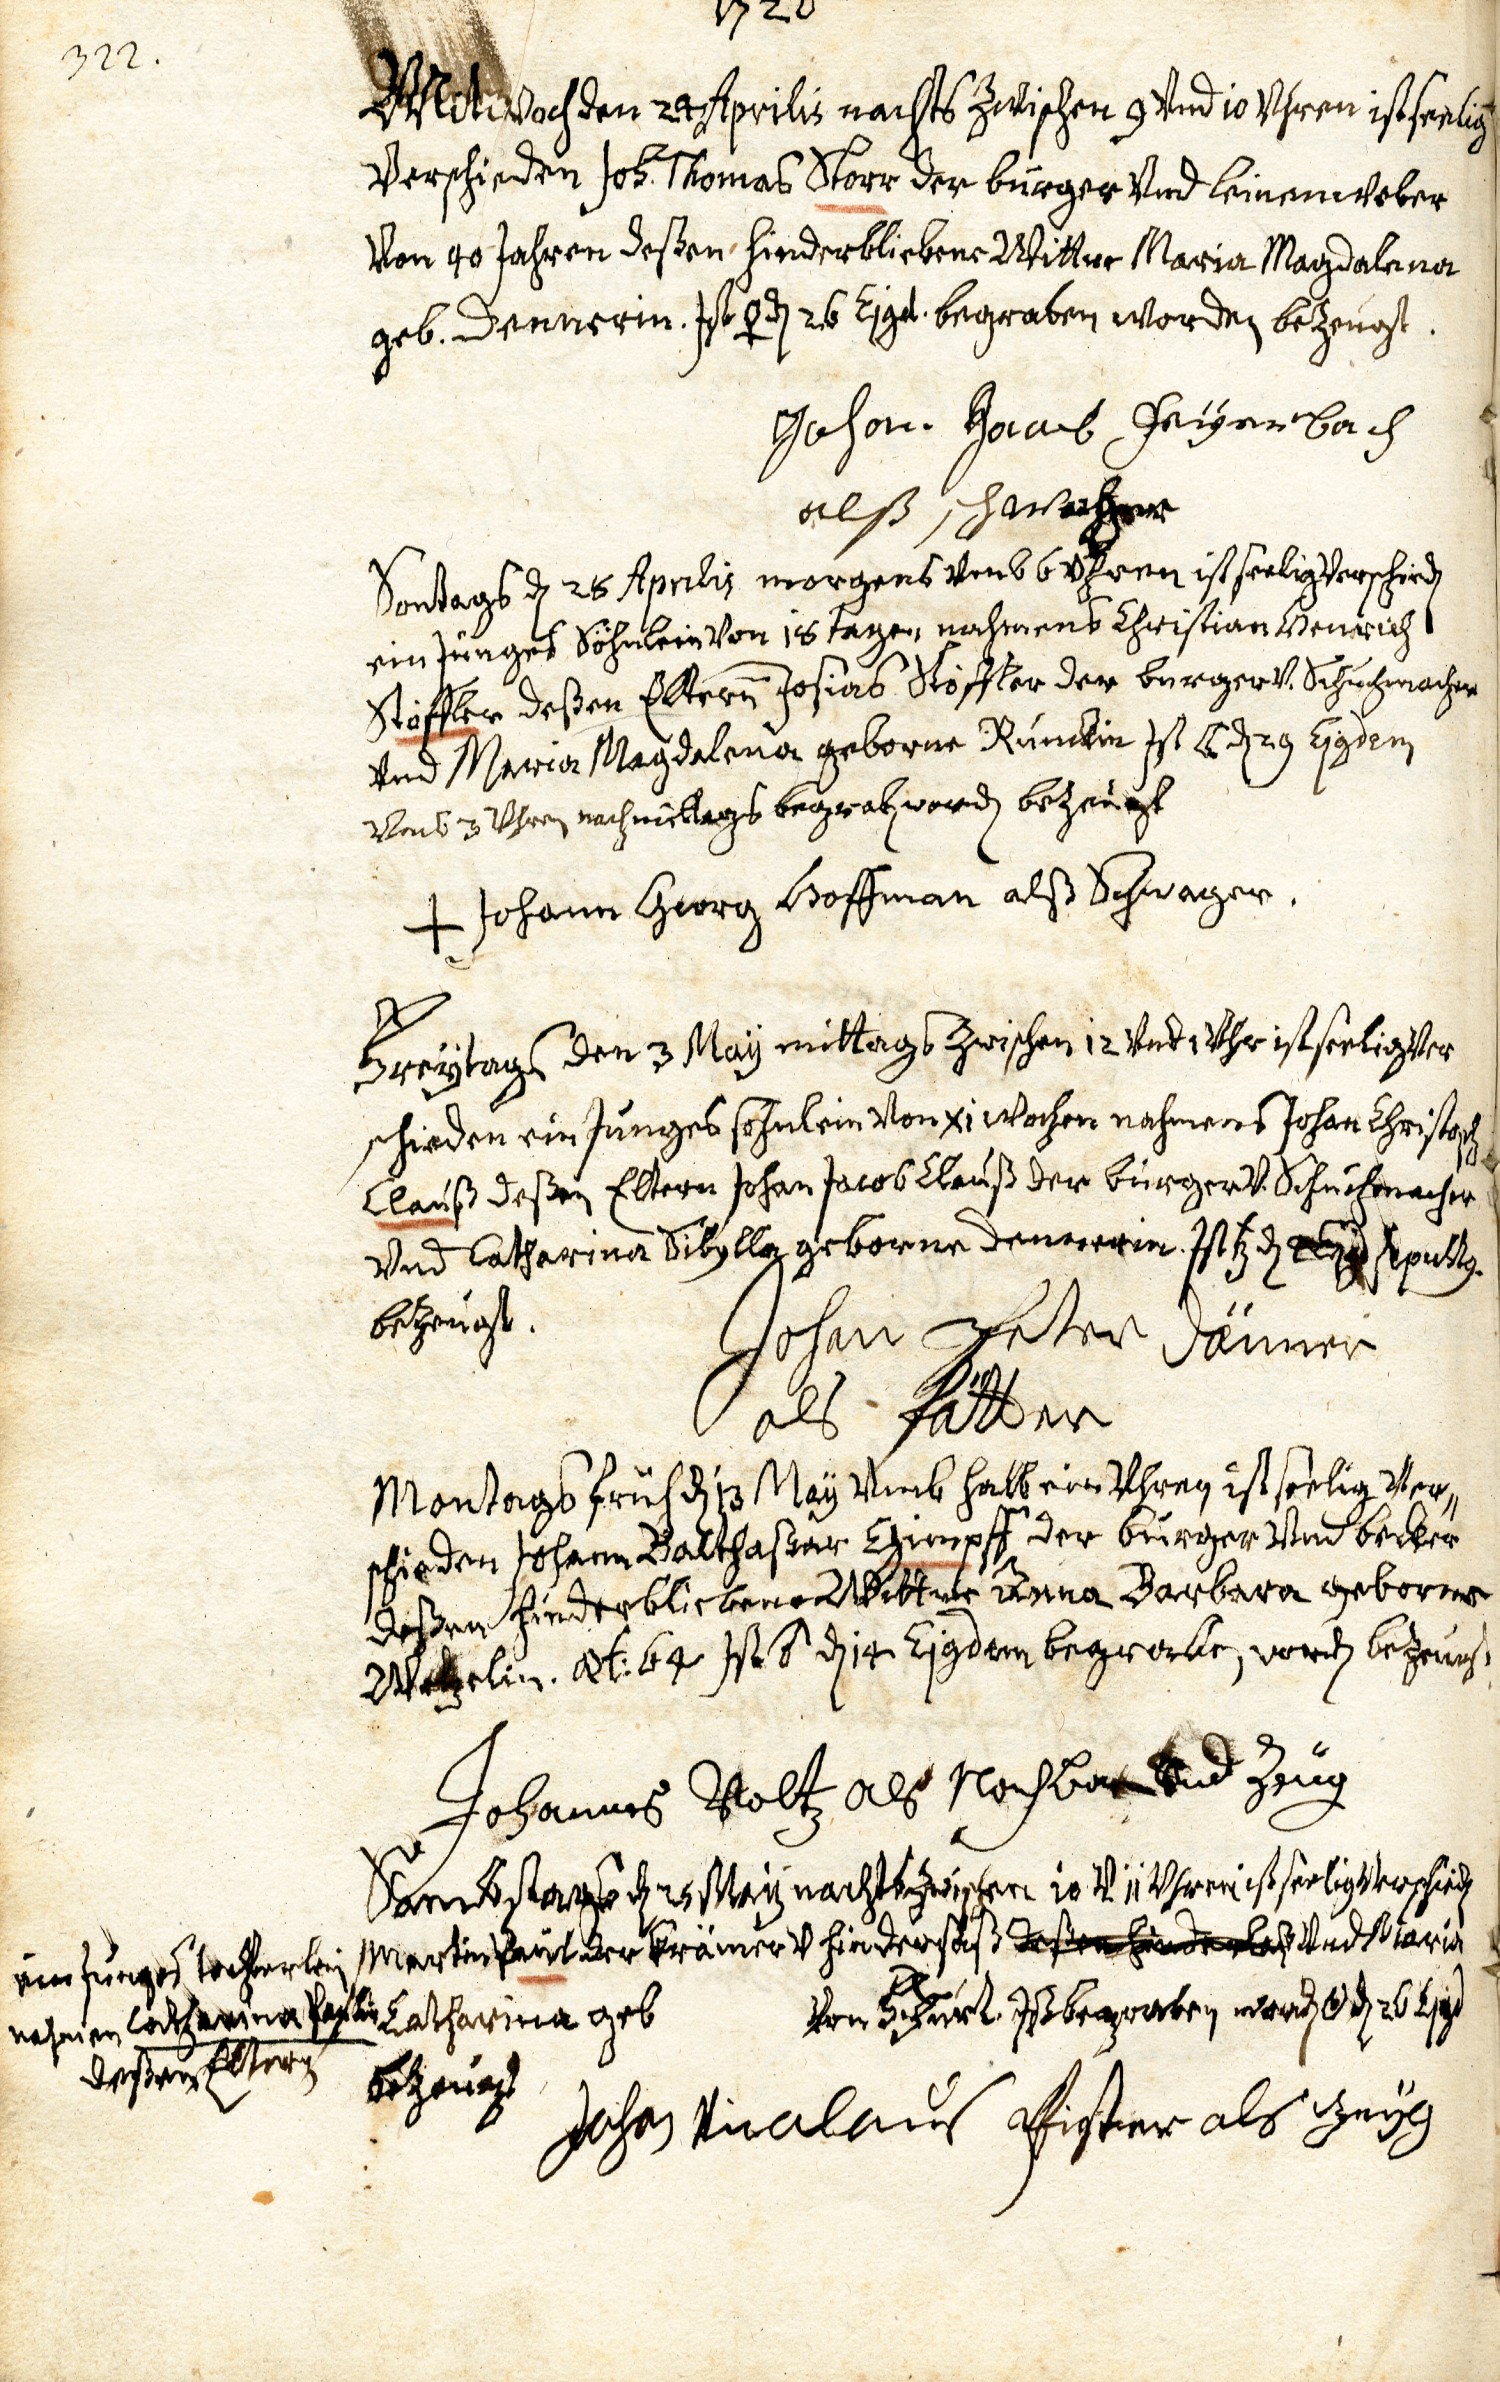 1720
322.
Mittwoch den 24 Aprilis nachts zwischen 9 Vnd 10 Vhren ist seelig
Verschieden Joh. Thomas Storr der burger Vnd leinenweber
Von 40 Jahren deßen hinderbliebene Wittwe Maria Magdalena
geb. Dennerin. Ist ♀ dn 26 Ejgd. begraben worden bezeugt.
Johan. Jacob Feÿerbach
alß schwacher
Sontags dn 28 Aprilis morgens Vmb 6 Vhren ist seelig Verschieden
ein Junges Söhnlein Von 18 tagen nahmens Christian Henrich
Stöffler deßen Elternn Josias Stöffler der burger V. Schuchmacher
Vnd Maria Magdalena geborne Runckin Ist ☾ dn 29 Ejgdem
Vmb 3 Vhren nachmittags begraben worden bezeugt
+ Johann Georg Hoffman alß Schwager.
Freytags den 3 Maÿ mittags zwischen 12 Vnd 1 Vhr ist seelig Ver
schieden ein Junges söhnlein Von XI wochen nahmens Johan Christoph
Clauß deßen Eltern Johan Jacob Clauß der burger V. Schuchmacher
Vnd Catharina Sibylla geborne Dennerin. Ist ♄ dn Ejgd sepultg.
bezeugt.
Johan Peter Dänner
als Pätter
Montags früh dn 13 Maÿ Vmb halb ein Vhren ist seelig Ver„
schieden Johann Balthaßar Gimpff der burger Vnd becker
deßen hinderbliebene Wittwe Anna Barbara geborne
Wetzelin. æt: 64 Ist ♂ dn 14 Ejgdem begraben worden bezeugt.
Johannes Voltz als Nachbar Vnd Zeüg
Sambstags dn 25 Maÿ nachts zwischen 10 V 11 Vhren ist seelig Verschieden
ein Junges tochterlein
nahmen Catharina Paulin
deßen Eltern
Martin Paul der Krämer V hindersaß deßen hinderlaß Vnd Maria
Catharina geb Von Ist begraben worden ☉ dn 26 Ejgd
bezeugt
Johan Nicalaus Pister als zeüg